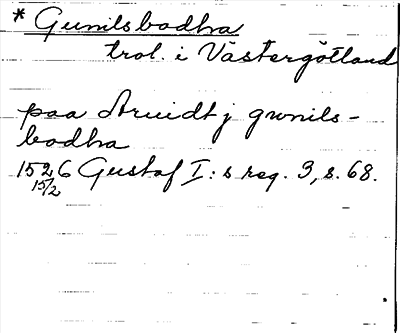 * Gunilsbodha
trol. i Västergötland
paa Aruidt j gwnils-
bodha
1526 Gustaf I:s reg. 3, s. 68.
15/2